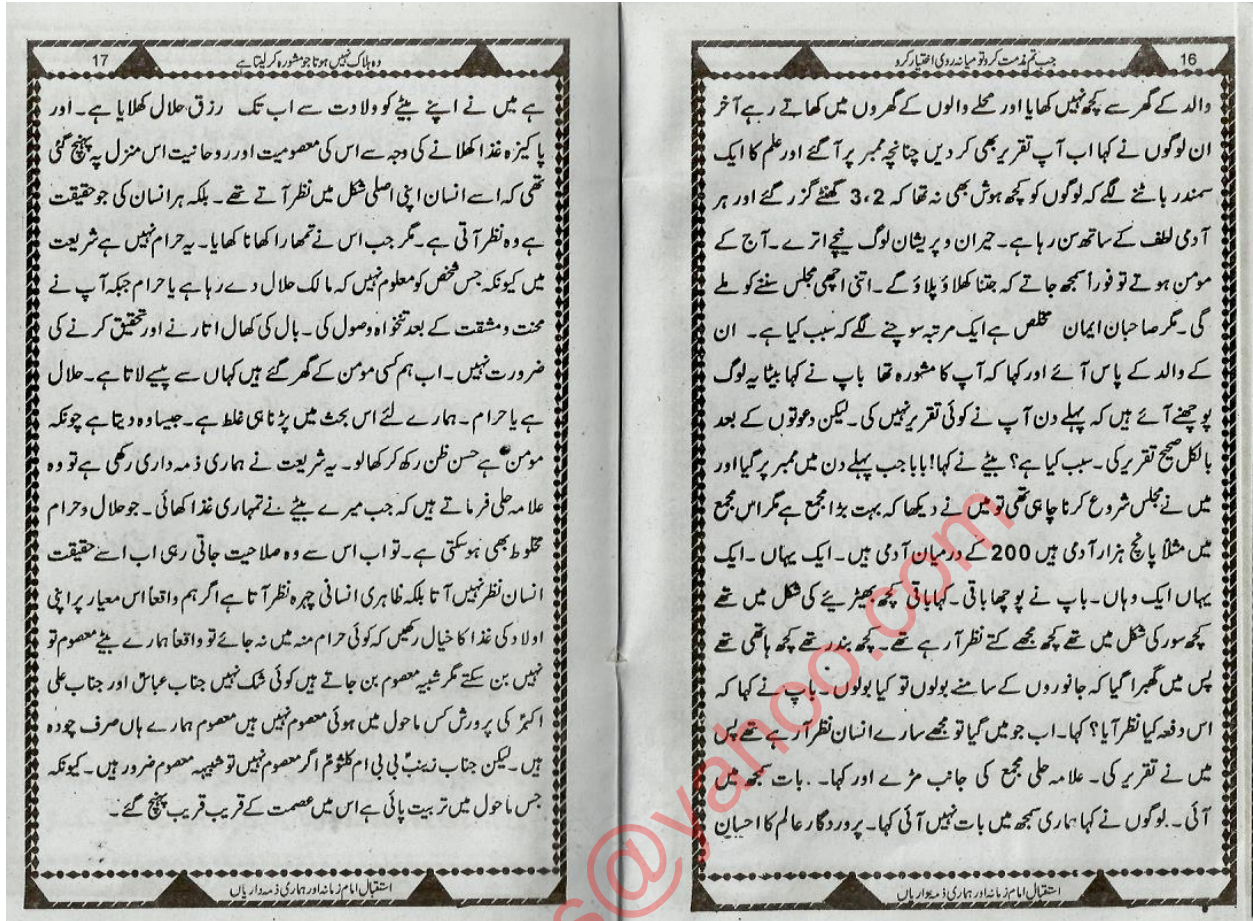 16
جب تم مذمت کرو تو میانہ روی اختیار کرو
والد کے گھر سے کچھ نہیں کھایا اور محلے والوں کے گھروں میں کھاتے رہے آخر
ان لوگوں نے کہا اب آپ تقریر بھی کر دیں چنانچہ ممبر پر آ گئے اور علم کا ایک
سمندر بانٹنے لگے کہ لوگوں کو کچھ ہوش بھی نہ تھا کہ 2، 3 گھنٹے گزر گئے اور ہر
آدمی لطف کے ساتھ سن رہا ہے۔ حیران و پریشان لوگ نیچے اترے۔ آج کے
مومن ہوتے تو فوراً سمجھ جاتے کہ جتنا کھلاؤ پلاؤ گے۔ اتنی اچھی مجلس سننے کو ملے
گی۔ مگر صاحبان ایمان مخلص ہے ایک مرتبہ سوچنے لگے کہ سبب کیا ہے۔ ان
کے والد کے پاس آئے اور کہا کہ آپ کا مشورہ تھا باپ نے کہا بیٹا یہ لوگ
پوچھنے آئے ہیں کہ پہلے دن آپ نے کوئی تقریر نہیں کی۔ لیکن دعوتوں کے بعد
بالکل صحیح تقریر کی۔ سبب کیا ہے؟ بیٹے نے کہا! بابا جب پہلے دن میں ممبر پر گیا اور
میں نے مجلس شروع کرنا چاہی تھی تو میں نے دیکھا کہ بہت بڑا مجمع ہے مگر اس مجمع
میں مثلاً پانچ ہزار آدمی ہیں 200 کے درمیان آدمی ہیں۔ ایک یہاں۔ ایک
یہاں ایک وہاں۔ باپ نے پوچھا باقی۔ کہا باقی کچھ بھیڑیئے کی شکل میں تھے
کچھ سور کی شکل میں تھے کچھ مجھے کتے نظر آ رہے تھے۔ کچھ بندر تھے کچھ ہاتھی تھے
پس میں گھبرا گیا کہ جانوروں کے سامنے بولوں تو کیا بولوں۔ باپ نے کہا کہ
اس دفعہ کیا نظر آیا؟ کہا۔ اب جو میں گیا تو مجھے سارے انسان نظر آ رہے تھے پس
میں نے تقریر کی۔ علامہ حلی مجمع کی جانب مڑے اور کہا۔ بات سمجھ میں
آئی۔ لوگوں نے کہا ہماری سمجھ میں بات نہیں آئی کہا۔ پروردگار عالم کا احسان
استقبال امام زمانہ اور ہماری ذمہ داریاں
17
وہ ہلاک نہیں ہوتا جو مشورہ کر لیتا ہے
ہے میں نے اپنے بیٹے کو ولادت سے اب تک رزق حلال کھلایا ہے۔ اور
پاکیزہ غذا کھلانے کی وجہ سے اس کی معصومیت اور روحانیت اس منزل پہ پہنچ گئی
تھی کہ اسے انسان اپنی اصلی شکل میں نظر آتے تھے۔ بلکہ ہر انسان کی جو حقیقت
ہے وہ نظر آتی ہے۔ مگر جب اس نے تمھارا کھانا کھایا۔ یہ حرام نہیں ہے شریعت
میں کیونکہ جس شخص کو معلوم نہیں کہ مالک حلال دے رہا ہے یا حرام جبکہ آپ نے
محنت و مشقت کے بعد تنخواہ وصول کی۔ بال کی کھال اتارنے اور تحقیق کرنے کی
ضرورت نہیں۔ اب ہم کسی مومن کے گھر گئے ہیں کہاں سے پیسے لاتا ہے۔ حلال
ہے یا حرام۔ ہمارے لئے اس بحث میں پڑنا ہی غلط ہے۔ جیسا وہ دیتا ہے چونکہ
مومن ہے حسن ظن رکھ کر کھالو۔ یہ شریعت نے ہماری ذمہ داری رکھی ہے تو وہ
علامہ حلی فرماتے ہیں کہ جب میرے بیٹے نے تمہاری غذا کھائی۔ جو حلال و حرام
مخلوط بھی ہو سکتی ہے۔ تو اب اس سے وہ صلاحیت جاتی رہی اب اسے حقیقت
انسان نظر نہیں آتا بلکہ ظاہری انسانی چہرہ نظر آتا ہے اگر ہم واقعاً اس معیار پر اپنی
اولاد کی غذا کا خیال رکھیں کہ کوئی حرام منہ میں نہ جائے تو واقعاً ہمارے بیٹے معصوم تو
نہیں بن سکتے مگر شبیہ معصوم بن جاتے ہیں کوئی شک نہیں جناب عباسؑ اور جناب علی
اکبرؑ کی پرورش کس ماحول میں ہوئی معصوم نہیں ہیں معصوم ہمارے ہاں صرف چودہ
ہیں۔ لیکن جناب زینبؑ بی بی ام کلثومؑ اگر معصوم نہیں تو شبیہہ معصوم ضرور ہیں۔ کیونکہ
جس ماحول میں تربیت پائی ہے اس میں عصمت کے قریب قریب پہنچ گئے۔
استقبال امام زمانہ اور ہماری ذمہ داریاں
s@yahoo.com